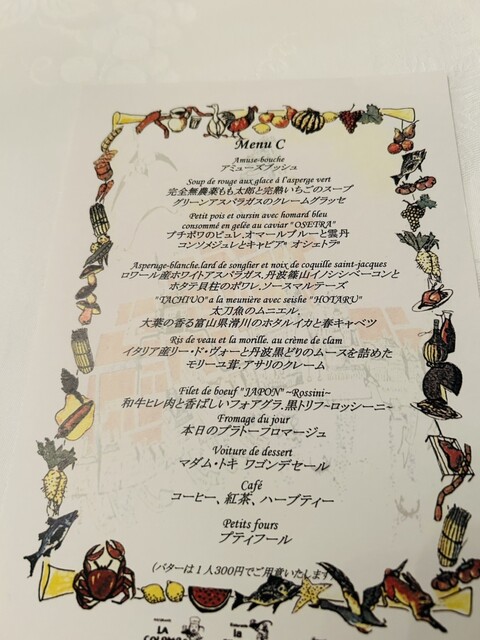 Menu C
Amuse-bouche
アミューズブッシュ
Soup de rouge aux glace à l'asperge vert
完全無農薬もも太郎と完熟いちごのスープ
グリーンアスパラガスのクレームグラッセ
Petit pois et oursin avec homard bleu
consommé en gelée au caviar "OSETRA"
プチポワのピュレ、オマールブルーと雲丹
コンソメジュレとキャビア"オシェトラ"
Asperuge-blanche.lard de songlier et noix de coquille saint-jacques
ロワール産ホワイトアスパラガス、丹波篠山イノシシベーコンと
ホタテ貝柱のポワレ、ソースマルテーズ
"TACHIUO" a la meunière avec seishe "HOTARU"
太刀魚のムニエル、
大葉の香る富山県滑川のホタルイカと春キャベツ
Ris de veau et la morille. au crème de clam
イタリア産リー・ド・ヴォーと丹波黒どりのムースを詰めた
モリーユ茸、アサリのクレーム
Filet de boeuf "JAPON" ~Rossini~
和牛ヒレ肉と香ばしいフォアグラ、黒トリフ~ロッシーニ~
Fromage du jour
本日のプラトーフロマージュ
Voiture de dessert
マダム・トキ ワゴンデセール
Café
コーヒー、紅茶、ハーブティー
Petits fours
プティフール
(バターは1人300円でご用意いたします
LA
La